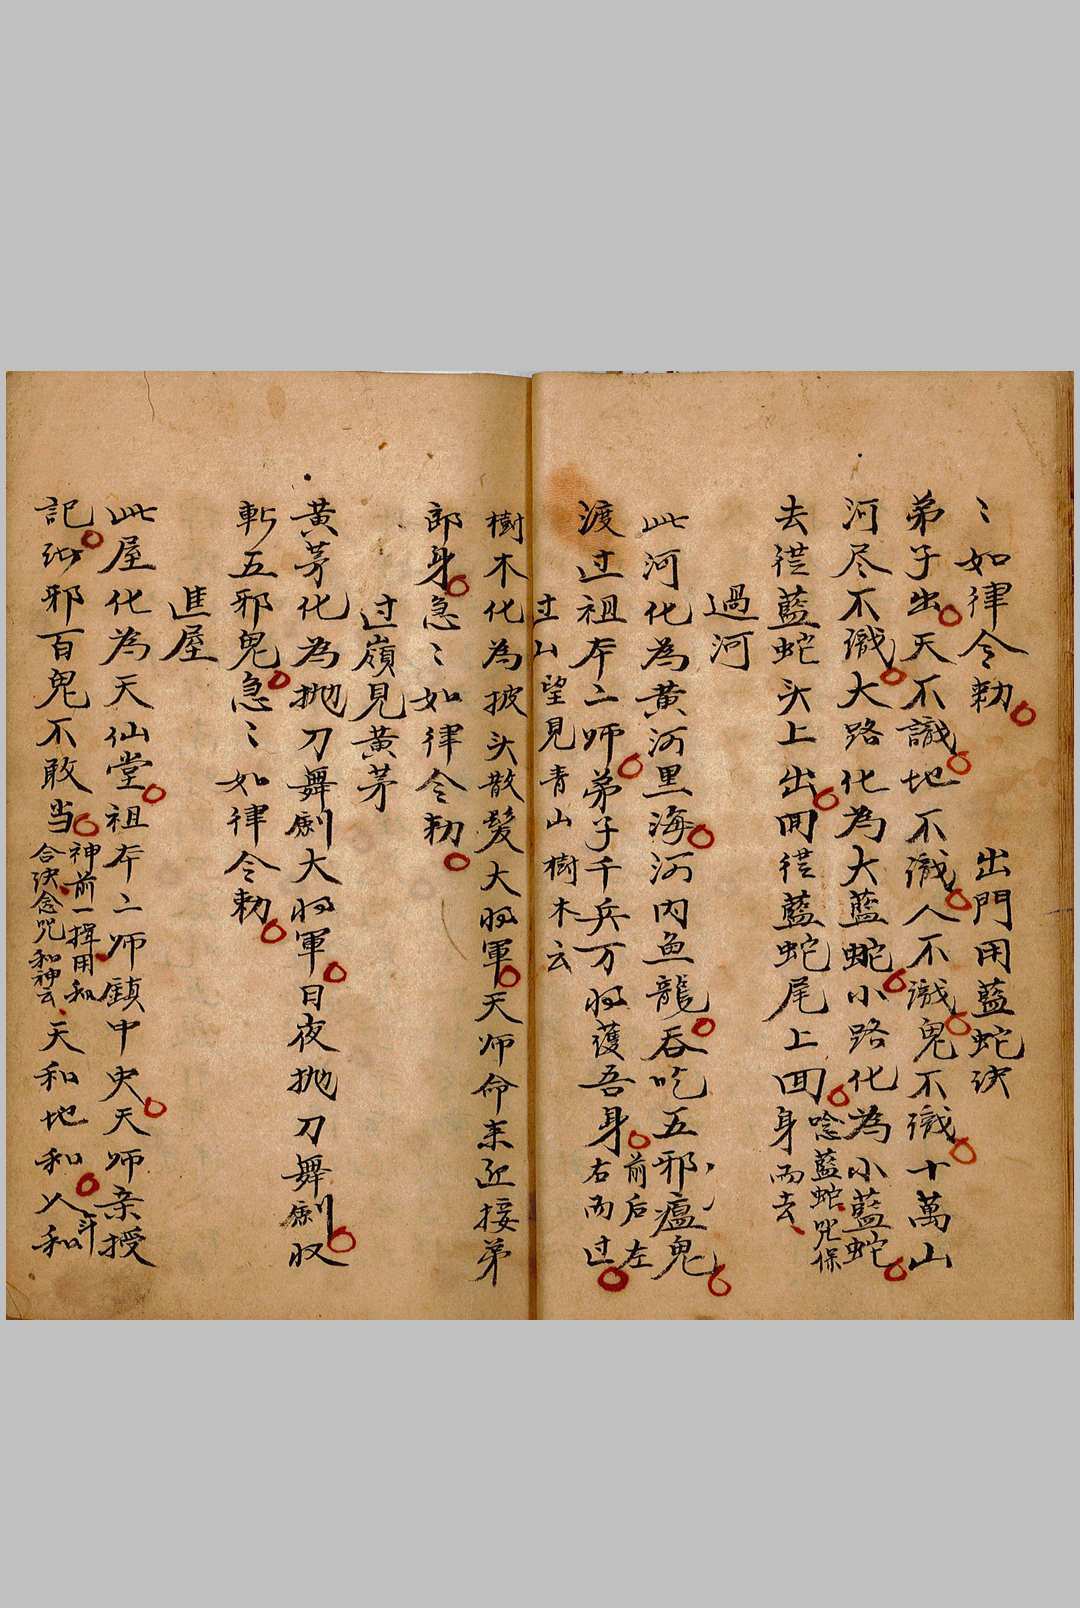 〻如律令勅　出門用藍蛇決
弟子出天不識地不識人不識鬼不識十萬山
河尽不識大路化為大藍蛇小路化為小藍蛇
去從藍蛇头上出回從藍蛇尾上回唸藍蛇咒保
身而去
過河
此河化為黄河里海河内鱼龍吞吃五邪瘟鬼
渡过祖本二师弟子千兵万将護吾身前后左
右而过
过山望見青山樹木云
樹木化為披头散髪大将軍天师命来近接弟
郎身急〻如律令勅
过嶺見黃茅
黄茅化為抛刀舞劍大将軍日夜抛刀舞劍収
斬五邪鬼急〻如律令勅
進屋
此屋化為天仙堂祖本二师鎮中央天师亲授
記邪百鬼不敢当神前一揖用和
合决念咒和神云天和地和人和年和